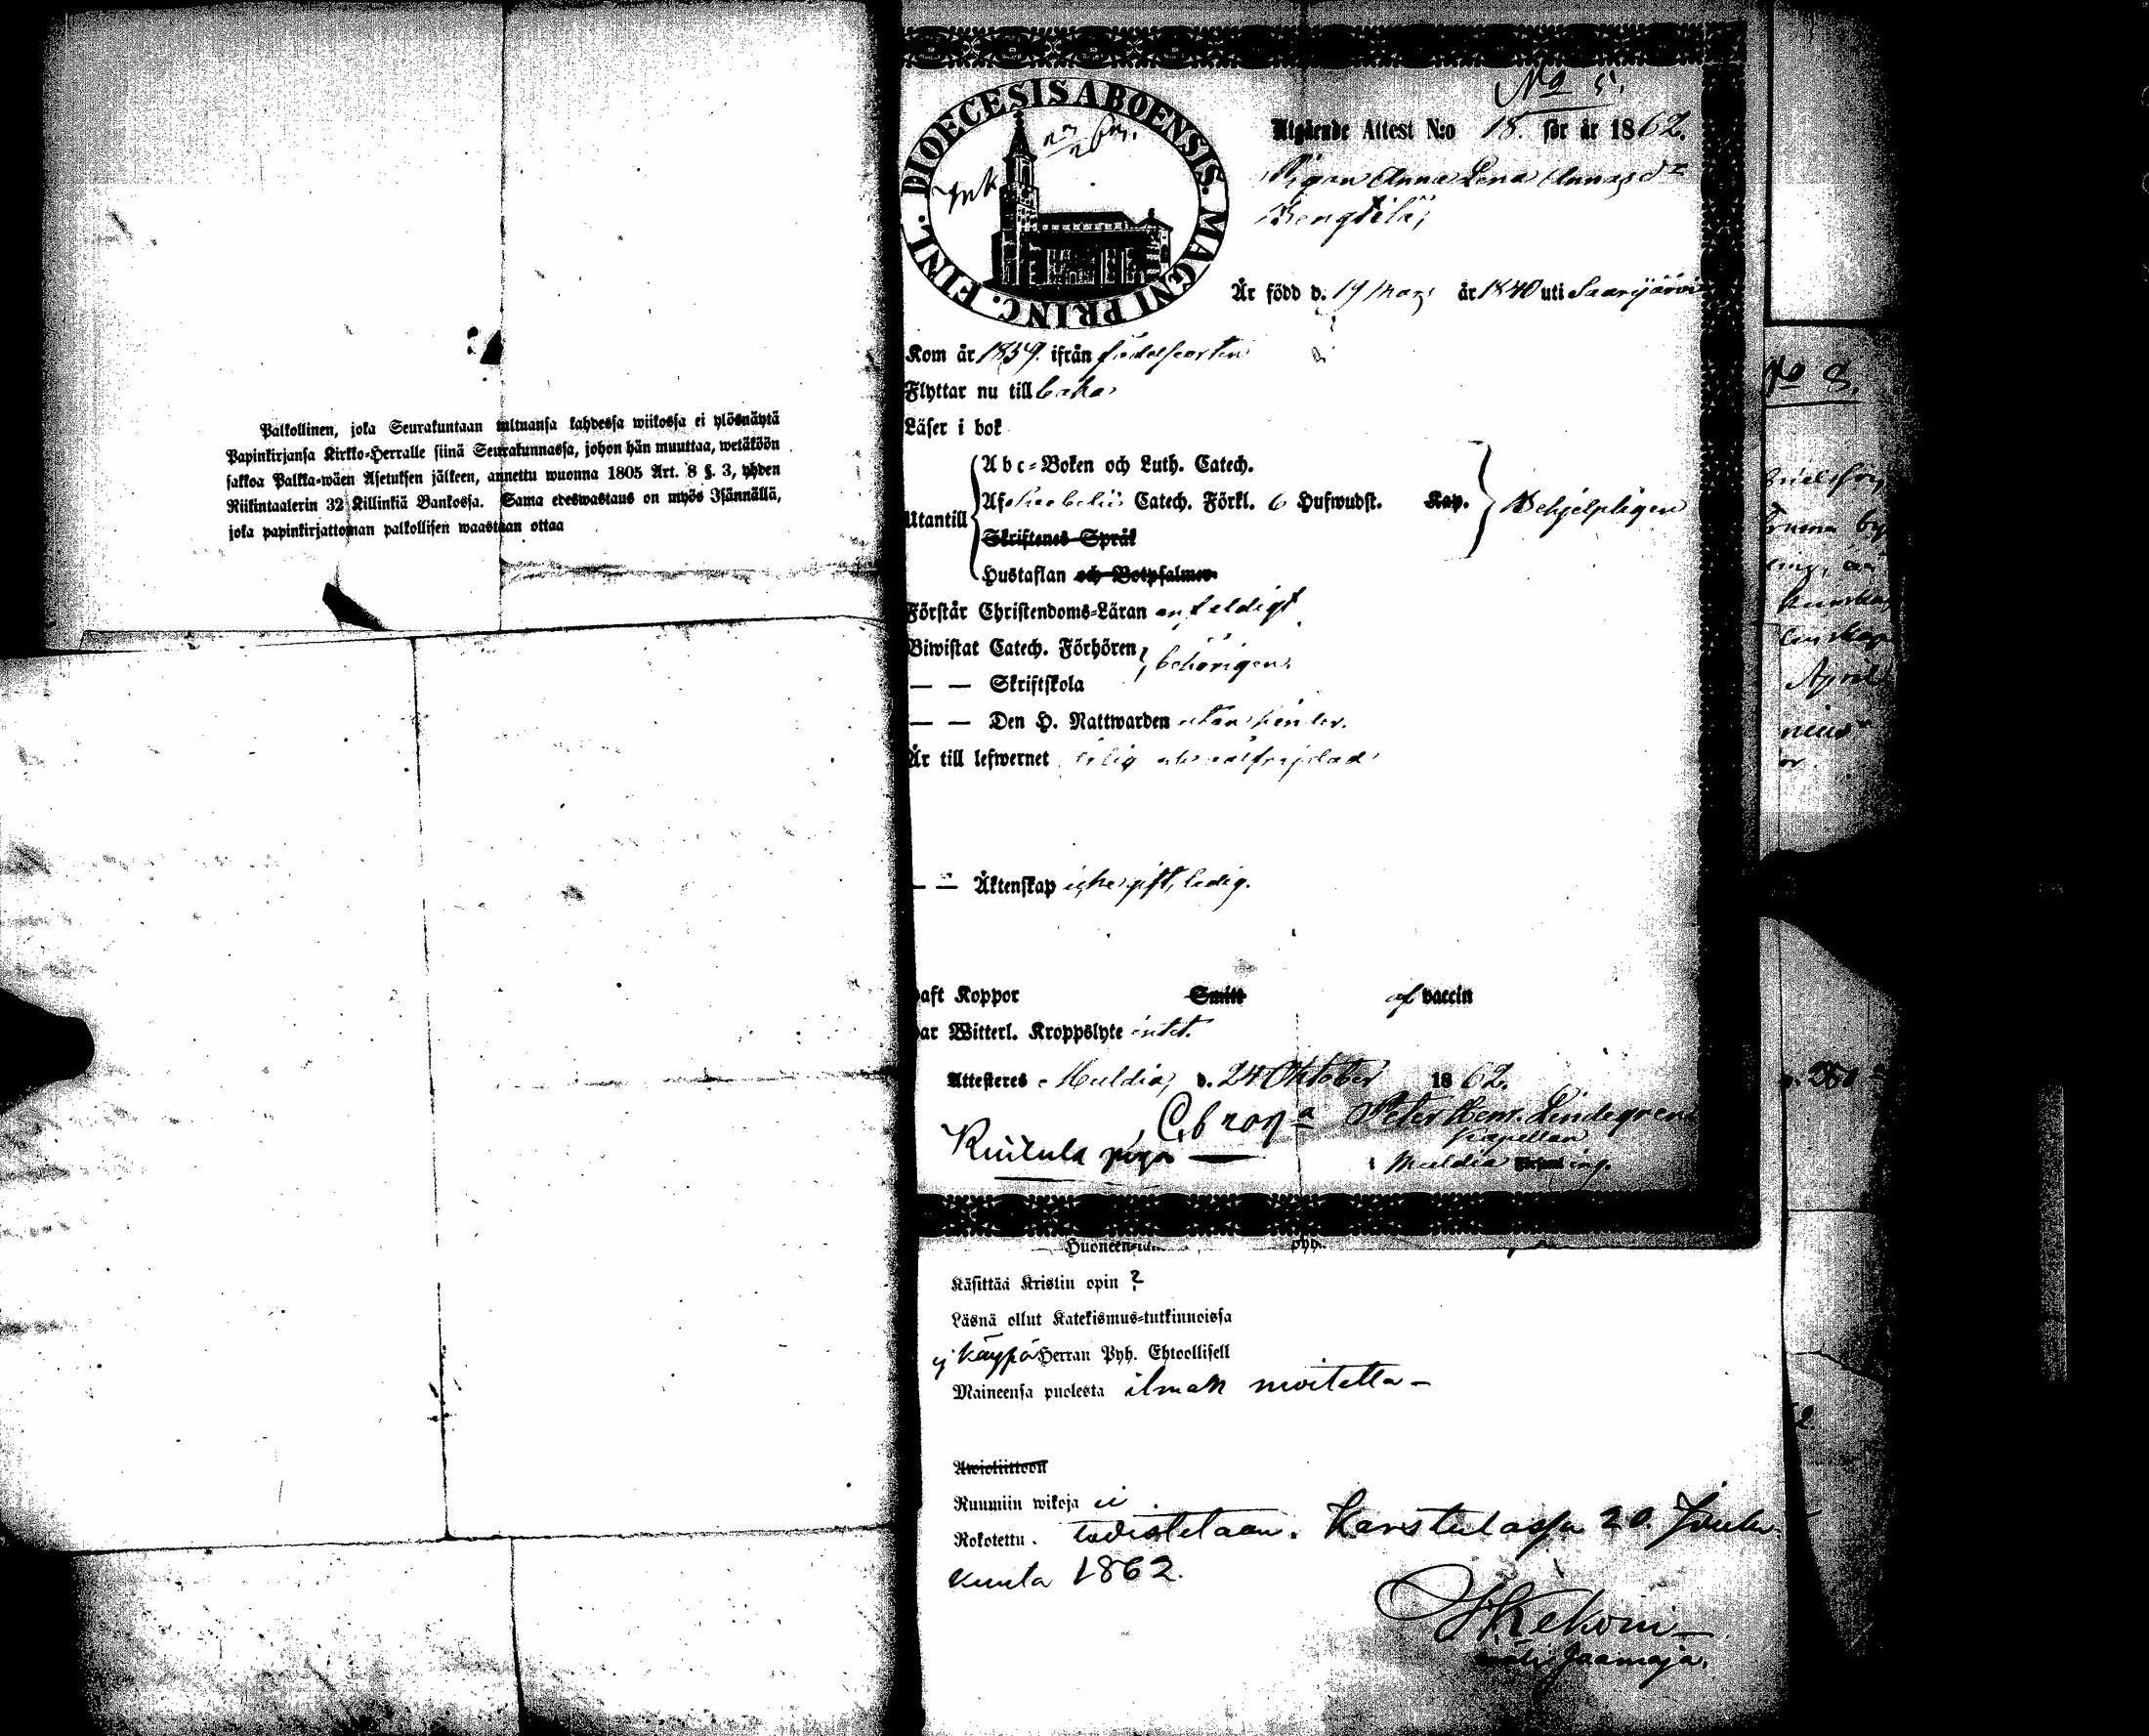 Palkollinen, joka Seurakuntaan tultuansa kahdessa wiikossa ei ylösnäytä
Papinkirjansa Kirkko-Herralle siinä Seurakunnassa, johon hän muuttaa, wetäköön
sakkoa Palkka-wäen Asetuksen jälkeen, annettu wuonna 1805 Art. 8 §. 3, yhden
Riikintaalerin 32 Killinkiä Bankossa. Sama edeswastaus on myös Isännällä,
joka papinkirjattoman palkollisen waastaan ottaa
DIOECESIS ABOENSIS. MAGNI PRINC. FINL.
No 5.
Utgående Attest N:o 18. för år 1862.
Pigan Anna Lena Annasdr
Bengtilä,
Är född d. 19 Mars år 1840 uti Saarijärvi
Kom år 1859. ifrån födelseorten
Flyttar nu till baka
Läser i bok
Utantill
Abc-Boken och Luth. Catech.
Af Catech. Förkl. 6 Hufwudst. Kap.
Behjelpligen
Skriftenes Språk
Hustaflan och Botpsalmer
Förstår Christendoms-Läran enfaldigt
Biwistat Catech. Förhören
behörigen.
— — Skriftskola
— — Den H. Nattwarden utan hinder.
Är till lefwernet ärlig och välfrejdad
— — Äktenskap icke gift, ledig.
haft Koppor Smitt af vaccin
har Witterl. Kroppslyte intet.
Attesteres Multia, d. 24 Oktober 1862.
Peter Hem. Lindegren
Kapellan
piga
No 8.
April
Huoneen
Käsittää Kristin opin ?
Läsnä ollut Katekismus-tutkinnoissa
käypä Herran Pyh. Ehtoollisell
Maineensa puolesta ilman moitetta –
Awioliittoon
Ruumiin wikoja ei
Rokotettu. todistetaan. Karstulassa 20. Joulu-
kuuta 1862.
HKekoni